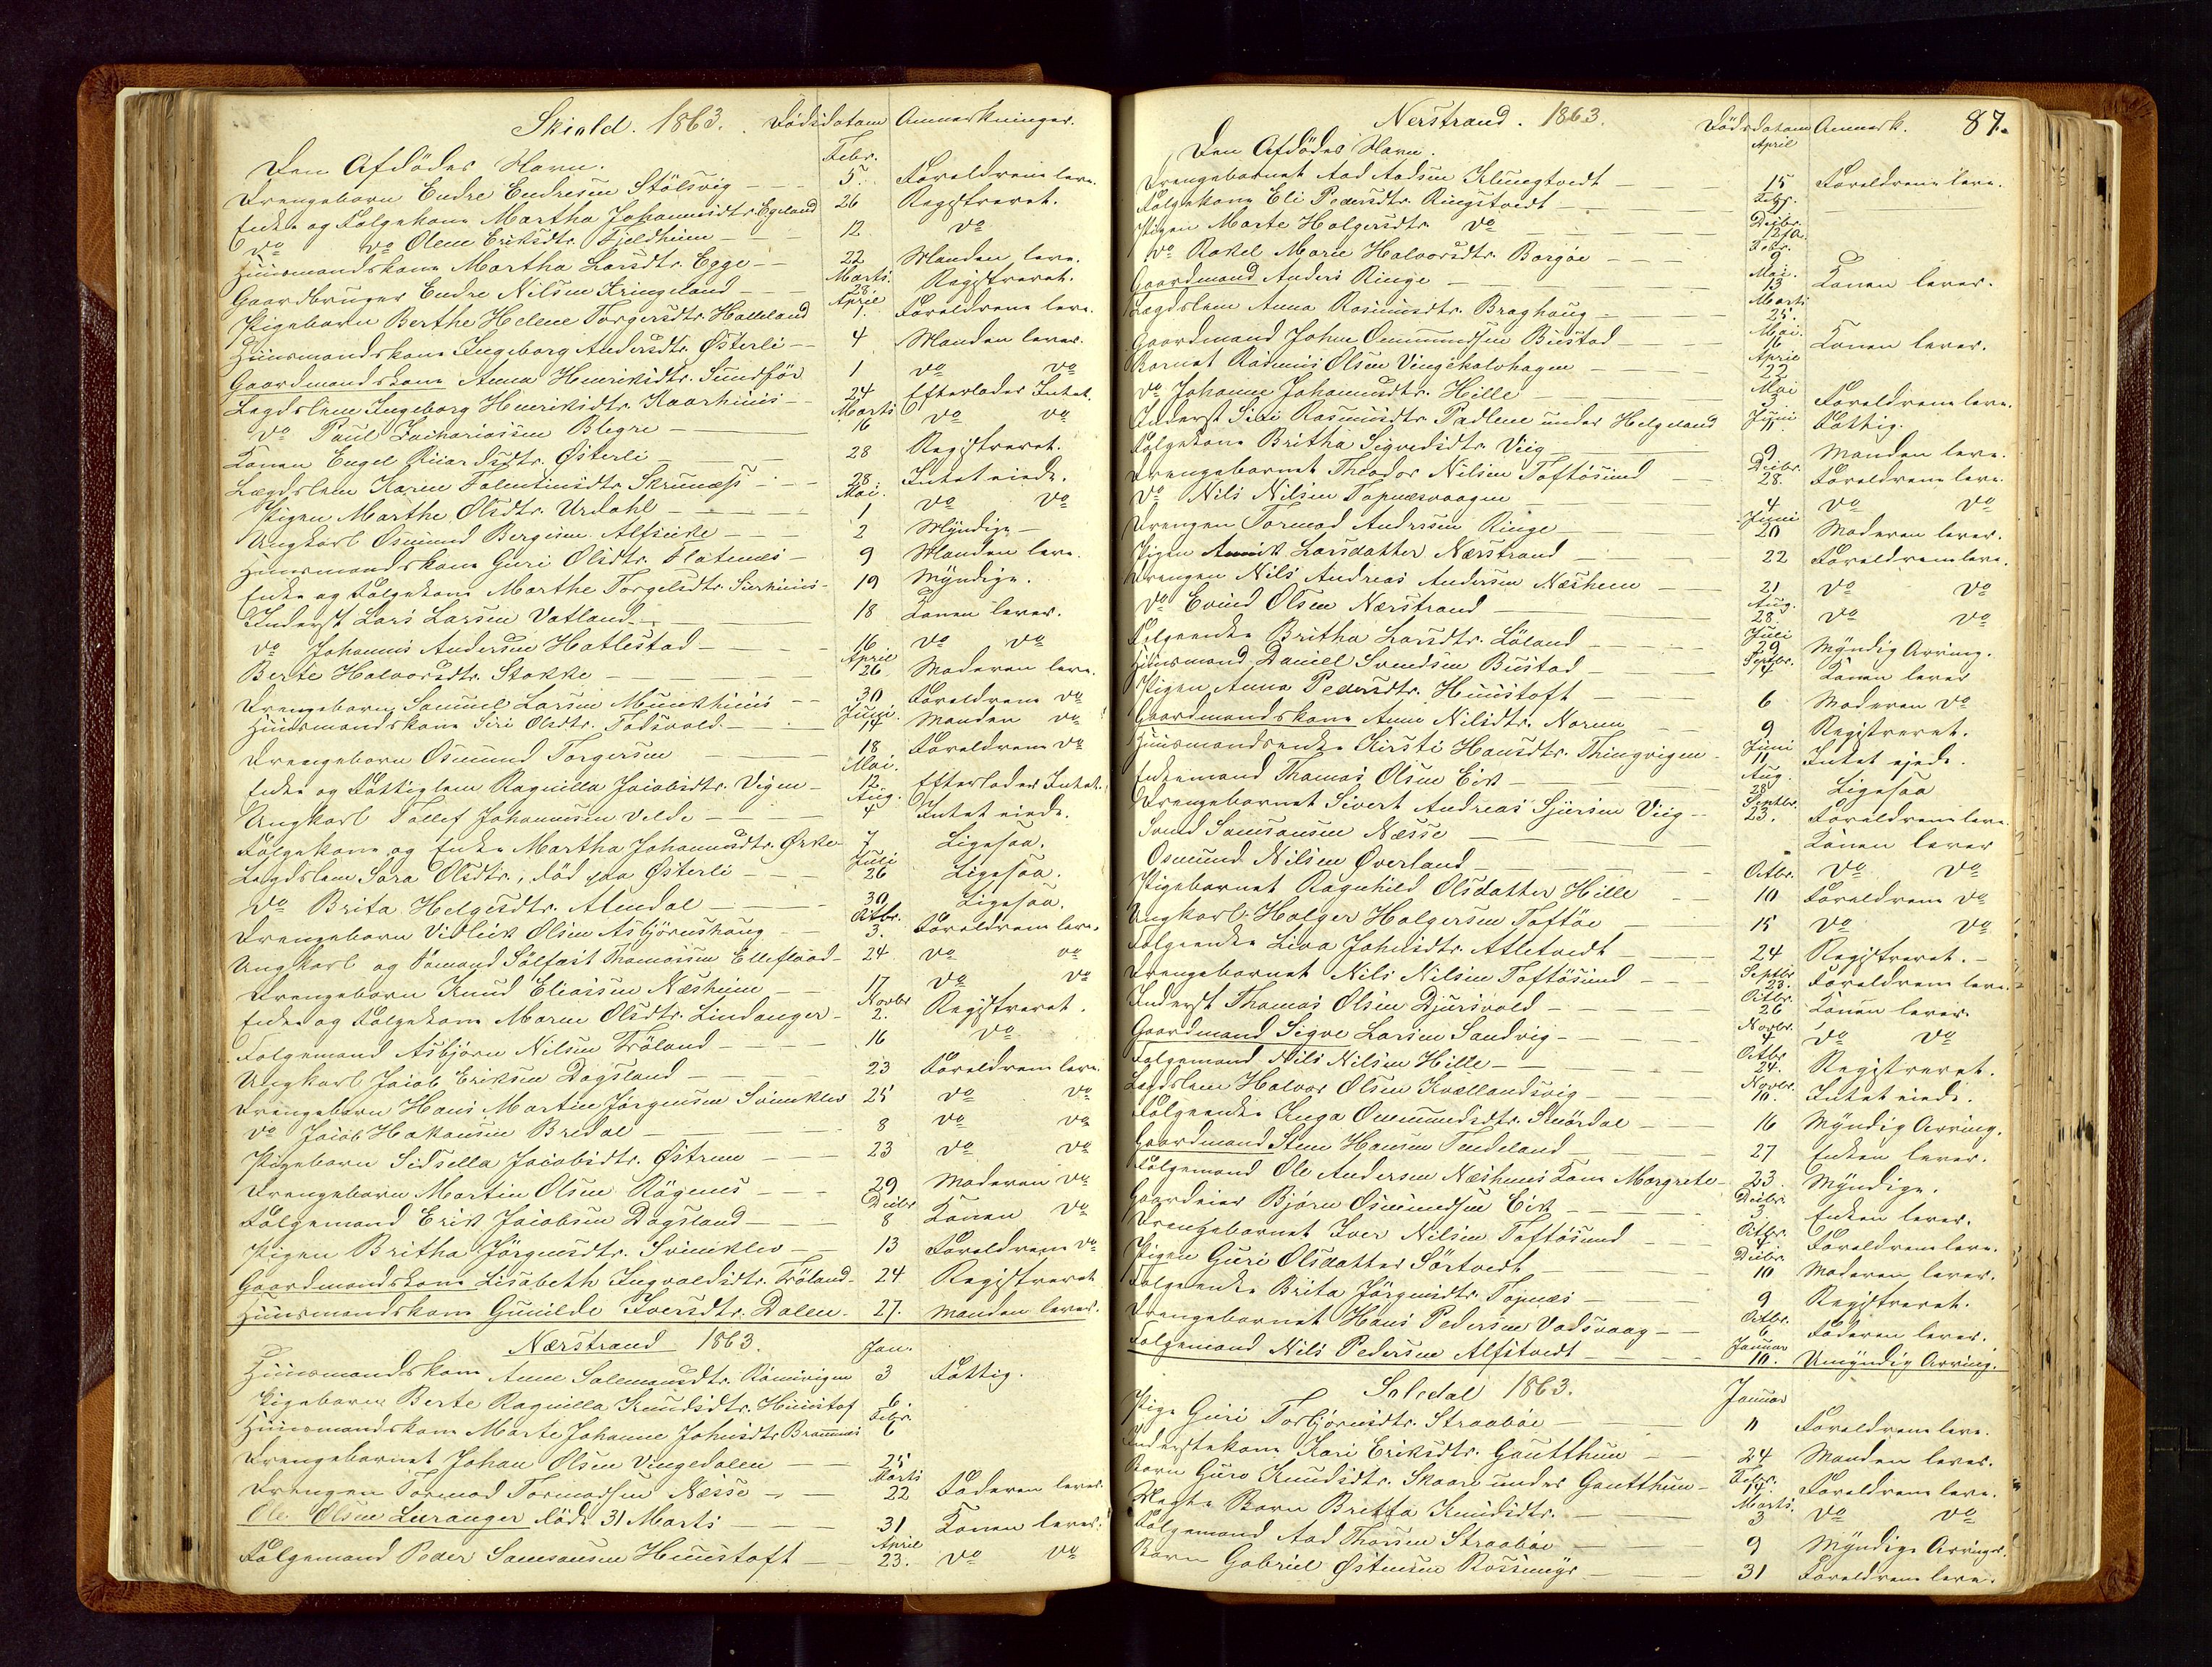 Skiold. 1863. Dödsdatum Anmærkninger.
Den Afdödes Navn. Febr.
Drengebarn Endre Endresen Stölsvig 5. Forældrene leve.
Enke og Folgekone Martha Johannesdtr. Egeland 26 Registreret.
do do Olene Eriksdtr. Fjeldheim 12 do
Huusmandskone Martha Larsdtr. Egge 22 Manden leve.
Gaardbruger Endre Nilsen Kringeland Marts. 28. Registreret.
Pigebarn Berthe Helene Torgersdtr. Halleland April 1. Forældrene leve.
Huusmandskone Ingeborg Andersdtr. Østerli 4 Manden lever.
Gaardmandskone Anna Henriksdtr. Sundför 1 do do
Lægdslem Ingeborg Henriksdtr. Kaarhuus 24 Efterlader Intet.
do Paul Zachariassen Blegre Marts 16 do do
Konen Engel Riiardsdtr. Østerli 28 Registreret.
Lægdslem Karen Valentinsdtr. Skrunæss 28. Intet eiede.
Pigen Marthe Olsdtr. Urdahl Mai. 1 do do
Ungkarl Osmund Bergesen Alfseike 2 Myndige
Huusmandskone Guri Olsdtr. Flatenæs 9 Manden leve.
Enke og Folgekone Marthe Torgelsdtr. 19 Myndige.
Inderst Lars Larsen Vatland 18 Konen lever.
do Johannes Andersen Hatlestad 16 do do
Berte Halvorsdtr. Stakke April 26 Moderen leve.
Drengebarn Samuel Larsen Munkhuus 30 Forældrene do
Huusmandskone Siri Olsdtr. Todsvold Juni. 14 Manden do
Drengebarn Osmund Torgersen 18 Forældrene do
Enke og Fattiglem Ragnilla Jacobsdtr. Vigen Mai. 12 Efterlader Intet.
Ungkarl Tollef Johannesen Velde Aug. 4 Intet eiede.
Folgekone og Enke Martha Johannesdtr. Ørke 7 Ligesaa.
Lægdslem Sara Olsdtr., död paa Østerli Juli 26 Ligesaa.
do Brita Helgesdtr. Alendal 30 Ligesaa.
Drengebarn Vidleik Olsen Asbjörnshoug Octbr. 3. Forældrene leve.
Ungkarl og Sömand Sölfæst Thomassen Elleflaad 24 do do
Drengebarn Knud Eliassen Næsheim 17 do do
Enke og Folgekone Maren Olsdtr. Lindanger Novbr 2. Registreret.
Folgemand Asbjörn Nilsen Tröland 16 do
Ungkarl Jacob Eriksen Dagsland 23 Forældrene leve.
Drengebarn Hans Martin Jörgensen Svineklev 25 do do
do Jacob Hakonsen Bredal 8 do do
Pigebarn Sidsella Jacobsdtr. Østrem 23 do do
Drengebarn Martin Olsen Rögenes 29 Moderen do
Folgemand Erik Jacobsen Dagsland Decbr 8 Konen do
Pigen Britha Jörgensdtr. Svineklev 13 Forældrene do
Gaardmandskone Lisabeth Ingvaldsdtr. Tröland 24 Registreret
Huusmandskone Gunilde Iversdtr. Dalen 27. Manden lever.
Nærstrand 1863. Jan.
Huusmandskone Anne Salemonsdtr. Ramsvigen 3 Fattig.
Pigebarn Berte Ragnilla Knudsdtr. Huustof 6.
Huusmandskone Marte Johanne Johnsdtr. Bramnes Febr. 6
Drengebarnet Johan Olsen Vingedalen 25
Drengen Tormod Tormodsen Næsse Marts 22 Faderen lever.
Ole Olsen Leeranger döde 31 Marts 31 Konen lever.
Folgemand Peder Samsonsen Huustoft April 23. do do
Nerstrand. 1863. Dödsdatum Anmerk. 87.
Den Afdödes Navn. April
Drengebarnet Aad Aadsen Klungtvedt 15 Forældrene leve.
Folgekone Eli Pedersdtr. Ringstvedt Febr.
Pigen Marte Holgersdtr. do Decbr.
do Rakel Marie Halvorsdtr. Borgöe Febr. 9
Gaardmand Anders Ringe Mai. 13 Konen lever.
Lægdslem Anna Rasmusdtr. Braghoug Marts 25.
Gaardmand John Ommundsen Bustad Mai. 16 Konen lever.
Barnet Rasmus Olsen Vingekalvhagen April 22
do Johanne Johannesdtr. Hille Mai 3 Forældrene leve.
Inderst Siri Rasmusdtr. Padlene under Helgeland Juni 11 Fattig.
Folgekone Britha Sigvedsdtr. Viig 9 Manden leve.
Drengebarnet Theodor Nilsen Toftösund Decbr. 28. Forældrene leve.
do Nils Nilsen Topnæsvaagen 4 do do
Drengen Tormod Andersen Ringe Juni 20 Moderen lever.
Pigen Larsdatter Nærstrand 22 Forældrene leve.
Drengen Nils Andreas Andersen Næshem 21 do do
do Evind Olsen Nærstrand Aug. 28. do do
Folgeenke Britha Larsdtr. Löland Juli 29 Myndig Arving.
Huusmand Daniel Svendsen Bustad Septbr. 14 Konen lever
Pigen Anna Pedersdtr. Huustoft 6 Moderen do
Gaardmandskone Anne Nilsdtr. Narem 9 Registreret.
Huusmandsenke Kirsti Hansdtr. Thingvigen Juni 11 Intet ejede.
Enkemand Thomas Olsen Eik Aug. 28 Ligesaa
Drengebarnet Sivert Andreas Sjursen Viig Septbr. 23. Forældrene leve.
Svend Samsonsen Næsse Konen lever
Osmund Nilsen Øverland Octbr. do do
Pigebarnet Ragnhild Olsdatter Hille 10 Forældrene do
Ungkarl Holger Holgersen Toftöe 15 do do
Folgeenke Liva Johnsdtr. Atletvedt 24 Registreret.
Drengebarnet Nils Nilsen Toftösund Septbr 23. Forældrene leve.
Inderst Thomas Olsen Djursvold Octbr. 26 Konen lever.
Gaardmand Sigve Larsen Sandvig Novbr. 4 do do
Folgemand Nils Nilsen Hille Octbr 24. Registreret.
Lægdslem Halvor Olsen Kvællandsvig Novbr. 10. Intet eiede.
Folgeenke Inga Ommundsdtr. Skördal 16 Myndig Arving.
Gaardmand Sten Hansen Tendeland 27 Enken lever.
Folgemand Ole Andersen Næshems Kone Margrete 23. Myndige.
Gaardeier Björn Osmundsen Eik Decbr 3. Enken lever.
Drengebarnet Iver Nilsen Toftösund Octbr. 4 Forældrene leve.
Pigen Guri Olsdatter Sörtvedt Decbr 10 Moderen lever.
Folgeenke Brita Jörgensdtr. Topnæs 9 Registreret.
Drengebarnet Hans Pedersen Vadsvaag Octbr. 6 Faderen lever.
Folgemand Nils Pedersen Alfstvedt Januar 10. Umyndig Arving.
Suledal 1863. Januar
Pige Guri Torbjörnsdtr. Straaböe 11 Forældrene leve.
Inderstekone Kari Eriksdtr. Gautthun 24 Manden lever.
Barn Guro Knudsdtr. Skaare under Gautthun Febr. 14. Forældrene leve.
Barn Britta Knudsdtr. Marts. 3 do do
Folgemand Aad Thorsen Straaböe 9 Myndige Arvinger.
Barn Gabriel Østensen Rossemyr 31 Forældrene leve.